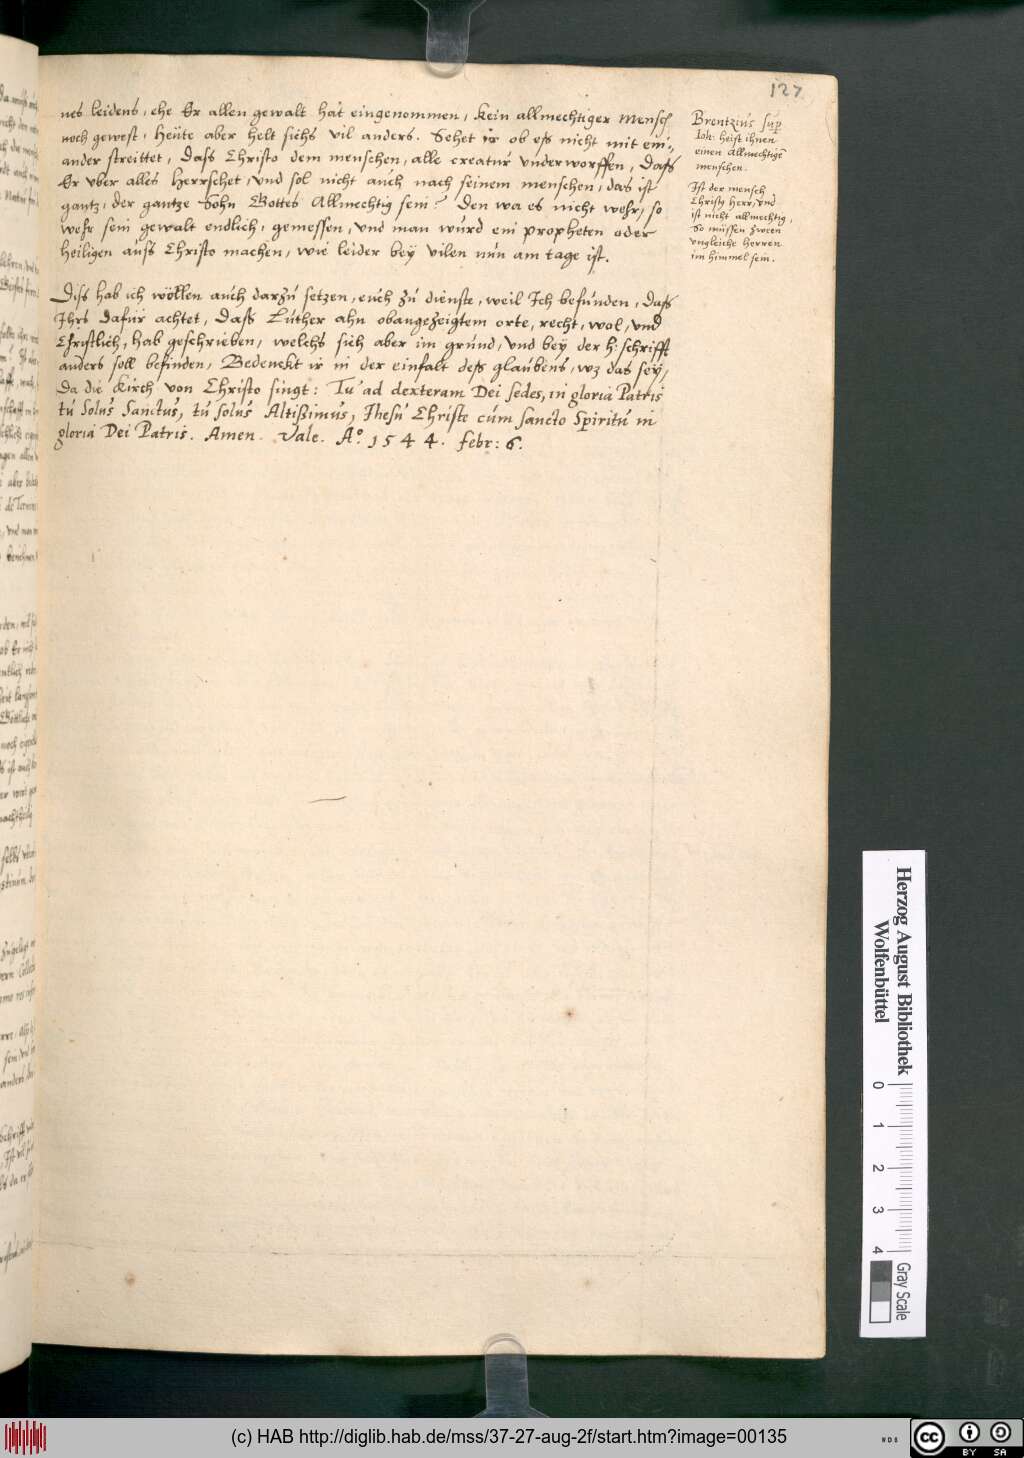 127
nes leidens, ehe Er allen gewalt hat eingenommen, kein allmechtiger mensch
noch gewest, Heüte aber helt sichs vil anders. Sehet ir ob eß nicht mit ein,,
ander streittet, daß Christo dem menschen, alle creatur underworffen, daß
Er uber alles herrschet, und sol nicht auch nach seinem menschen, das ist
gantz, der gantze Sohn Gottes Allmechtig sein? Den wa es nicht wehr, so
wehr sein gewalt endlich, gemessen, und man wurd ein propheten oder
heiligen auß Christo machen, wie leider bey vilen nun am tage ist.
Diß hab ich wöllen auch darzu setzen, euch zu dienste, weil Ich befunden, daß
Ihrs dafur achtet, daß Luther ahn obangezeigtem orte, recht, wol, und
Christlich, hab geschrieben, welchs sich aber im grund, und bey der h: schrifft
anders soll befinden, Bedenckt ir in der einfalt deß glaubens, wz das sey,
Da die kirch von Christo singt: Tu ad dexteram Dei sedes, in gloria Patris
tu solus Sanctus, tu solus Altißimus, Jhesu Christe cum sancto Spiritu in
gloria Dei Patris. Amen. Vale. Ao. 1544. febr: 6.
Brentzius sup
Ioh: heist ihnen
einen Allmechtigē
menschen.
Ist der mensch
Christg herr, und
ist nicht allmechtig,
So müssen zween
ungleiche herren
im himmel sein.
Herzog August Bibliothek
Wolfenbüttel
0 1 2 3 4
Gray Scale
(c) HAB http://diglib.hab.de/mss/37-27-aug-2f/start.htm?image=00135
WDB
cc BY SA